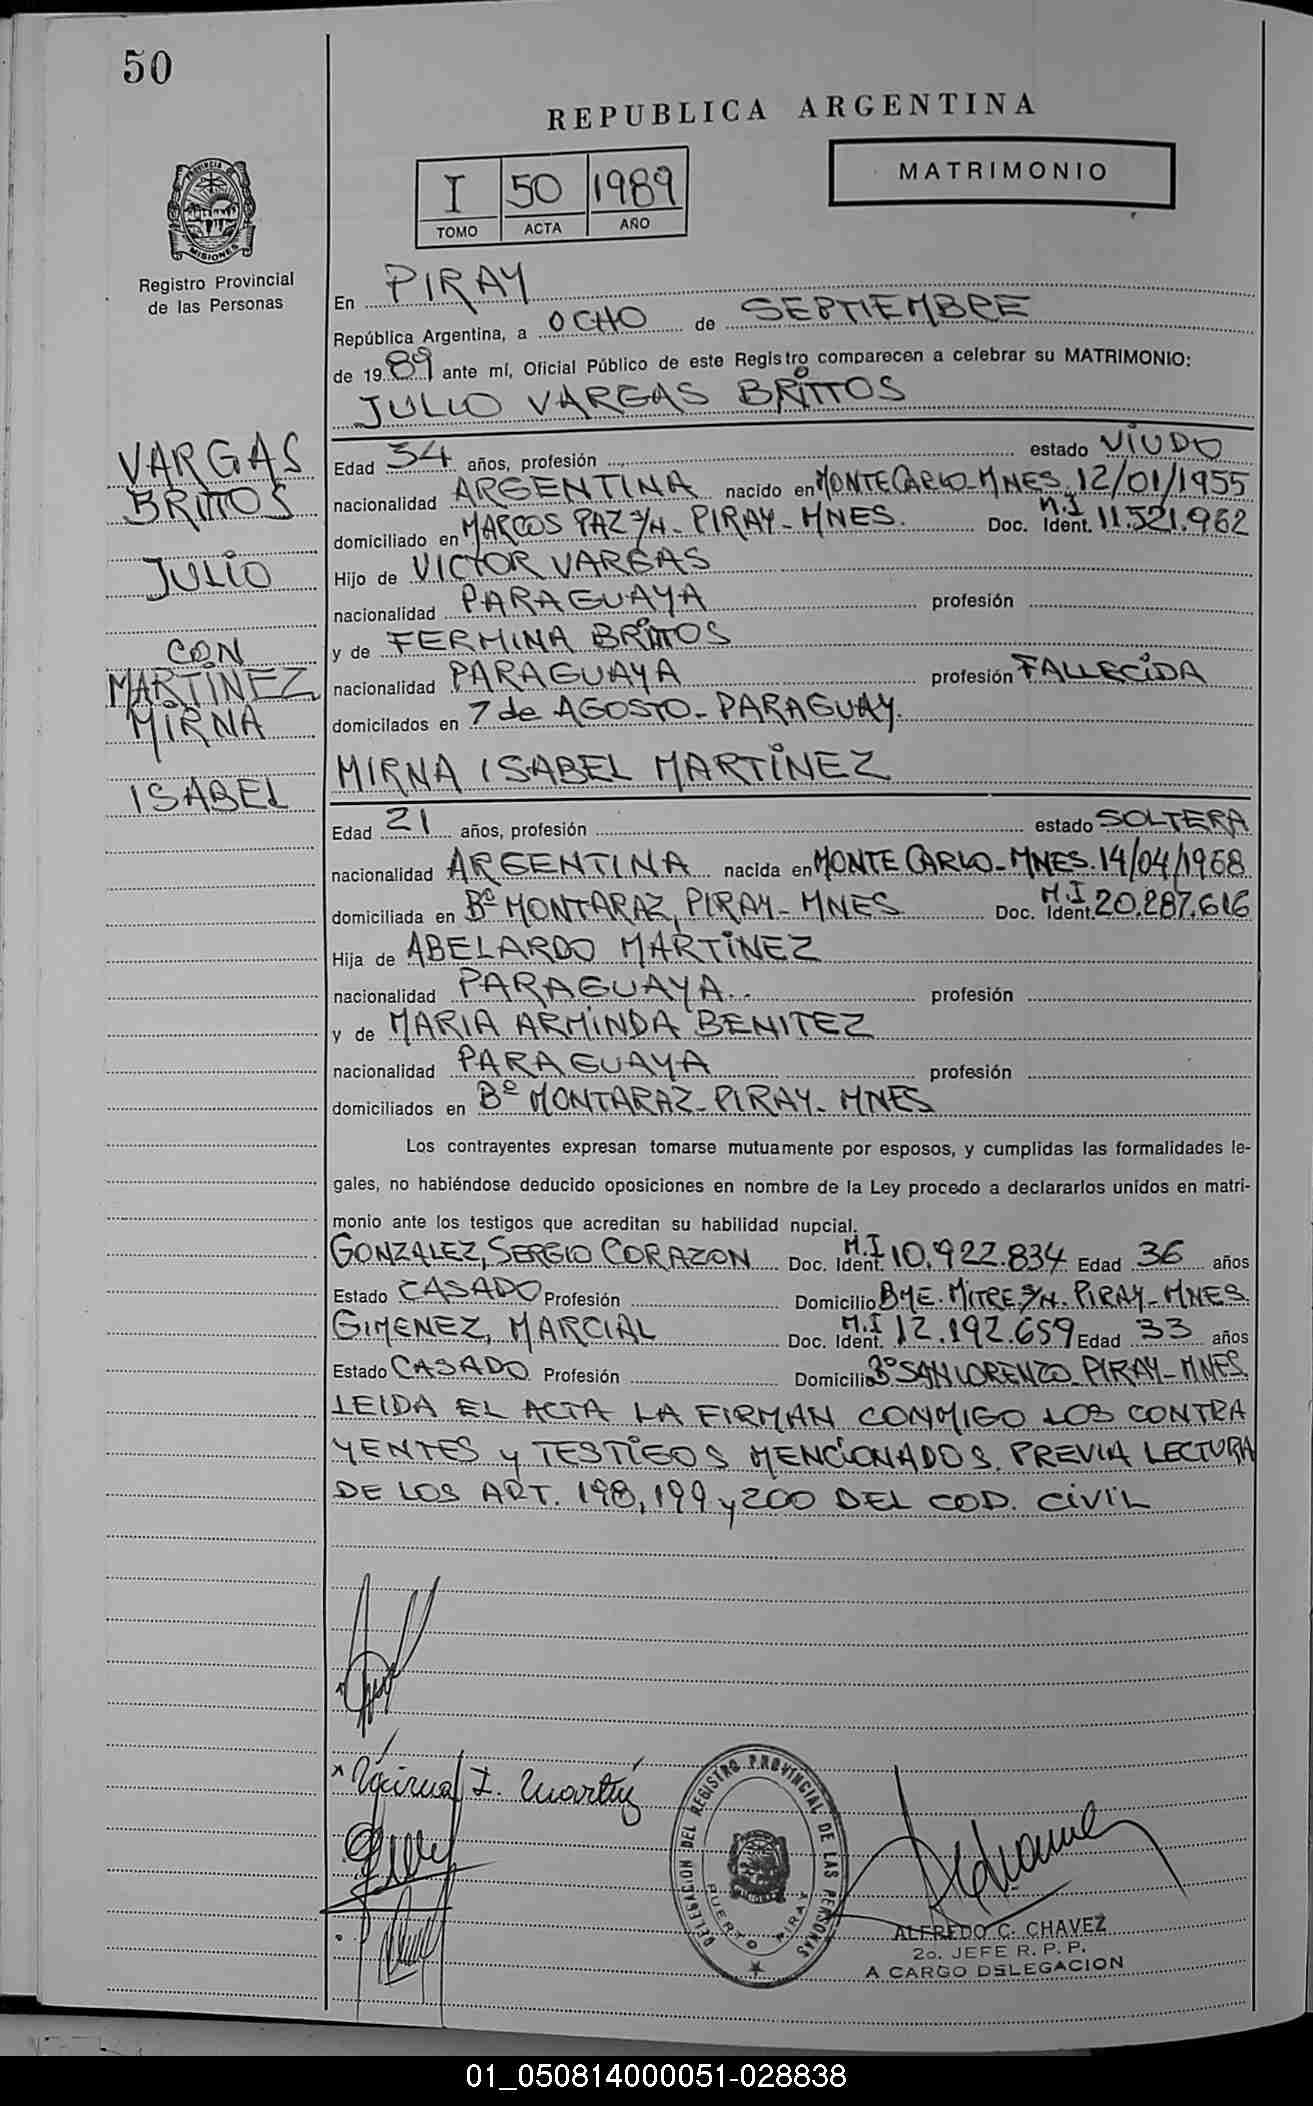 50
REPUBLICA ARGENTINA
MATRIMONIO
I 50 1989
TOMO ACTA AÑO
PROVINCIA DE
MISIONES
Registro Provincial
de las Personas
En PIRAY
República Argentina, a OCHO de SEPTIEMBRE
de 19 89 ante mí, Oficial Público de este Registro comparecen a celebrar su MATRIMONIO:
JULIO VARGAS BRITTOS
VARGAS
BRITTOS
JULIO
CON
MARTINEZ
MIRNA
ISABEL
Edad 34 años, profesión estado VIUDO
nacionalidad ARGENTINA nacido en MONTECARLO-MNES. 12/01/1955
domiciliado en MARCOS PAZ S/N- PIRAY-MNES. Doc. Ident. M.I 11.521.962
Hijo de VICTOR VARGAS
nacionalidad PARAGUAYA profesión
y de FERMINA BRITTOS
nacionalidad PARAGUAYA profesión FALLECIDA
domicilados en 7 de AGOSTO- PARAGUAY.
MIRNA ISABEL MARTINEZ
Edad 21 años, profesión estado SOLTERA
nacionalidad ARGENTINA nacida en MONTE CARLO-MNES. 14/04/1968
domiciliada en Bº MONTARAZ, PIRAY-MNES Doc. Ident. M.I 20.287.616
Hija de ABELARDO MARTINEZ
nacionalidad PARAGUAYA.. profesión
y de MARIA ARMINDA BENITEZ
nacionalidad PARAGUAYA profesión
domiciliados en Bº MONTARAZ-PIRAY-MNES
Los contrayentes expresan tomarse mutuamente por esposos, y cumplidas las formalidades le-
gales, no habiéndose deducido oposiciones en nombre de la Ley procedo a declararlos unidos en matri-
monio ante los testigos que acreditan su habilidad nupcial.
GONZALEZ, SERGIO CORAZON Doc. Ident. M.I 10.922.834 Edad 36 años
Estado CASADO Profesión Domicilio BME. MITRE S/N. PIRAY-MNES.
GIMENEZ, MARCIAL Doc. Ident. M.I 12.192.659 Edad 33 años
Estado CASADO Profesión Domicilio Bº SAN LORENZO-PIRAY-MNES.
LEIDA EL ACTA LA FIRMAN CONMIGO LOS CONTRA
YENTES y TESTIGOS MENCIONADOS. PREVIA LECTURA
DE LOS ART. 198, 199 y 200 DEL COD. CIVIL
Mirna I. Martinez
DELEGACION DEL REGISTRO PROVINCIAL DE LAS PERSONAS
PUERTO PIRAY
ALFREDO C. CHAVEZ
2o. JEFE R. P. P.
A CARGO DELEGACION
01_050814000051-028838